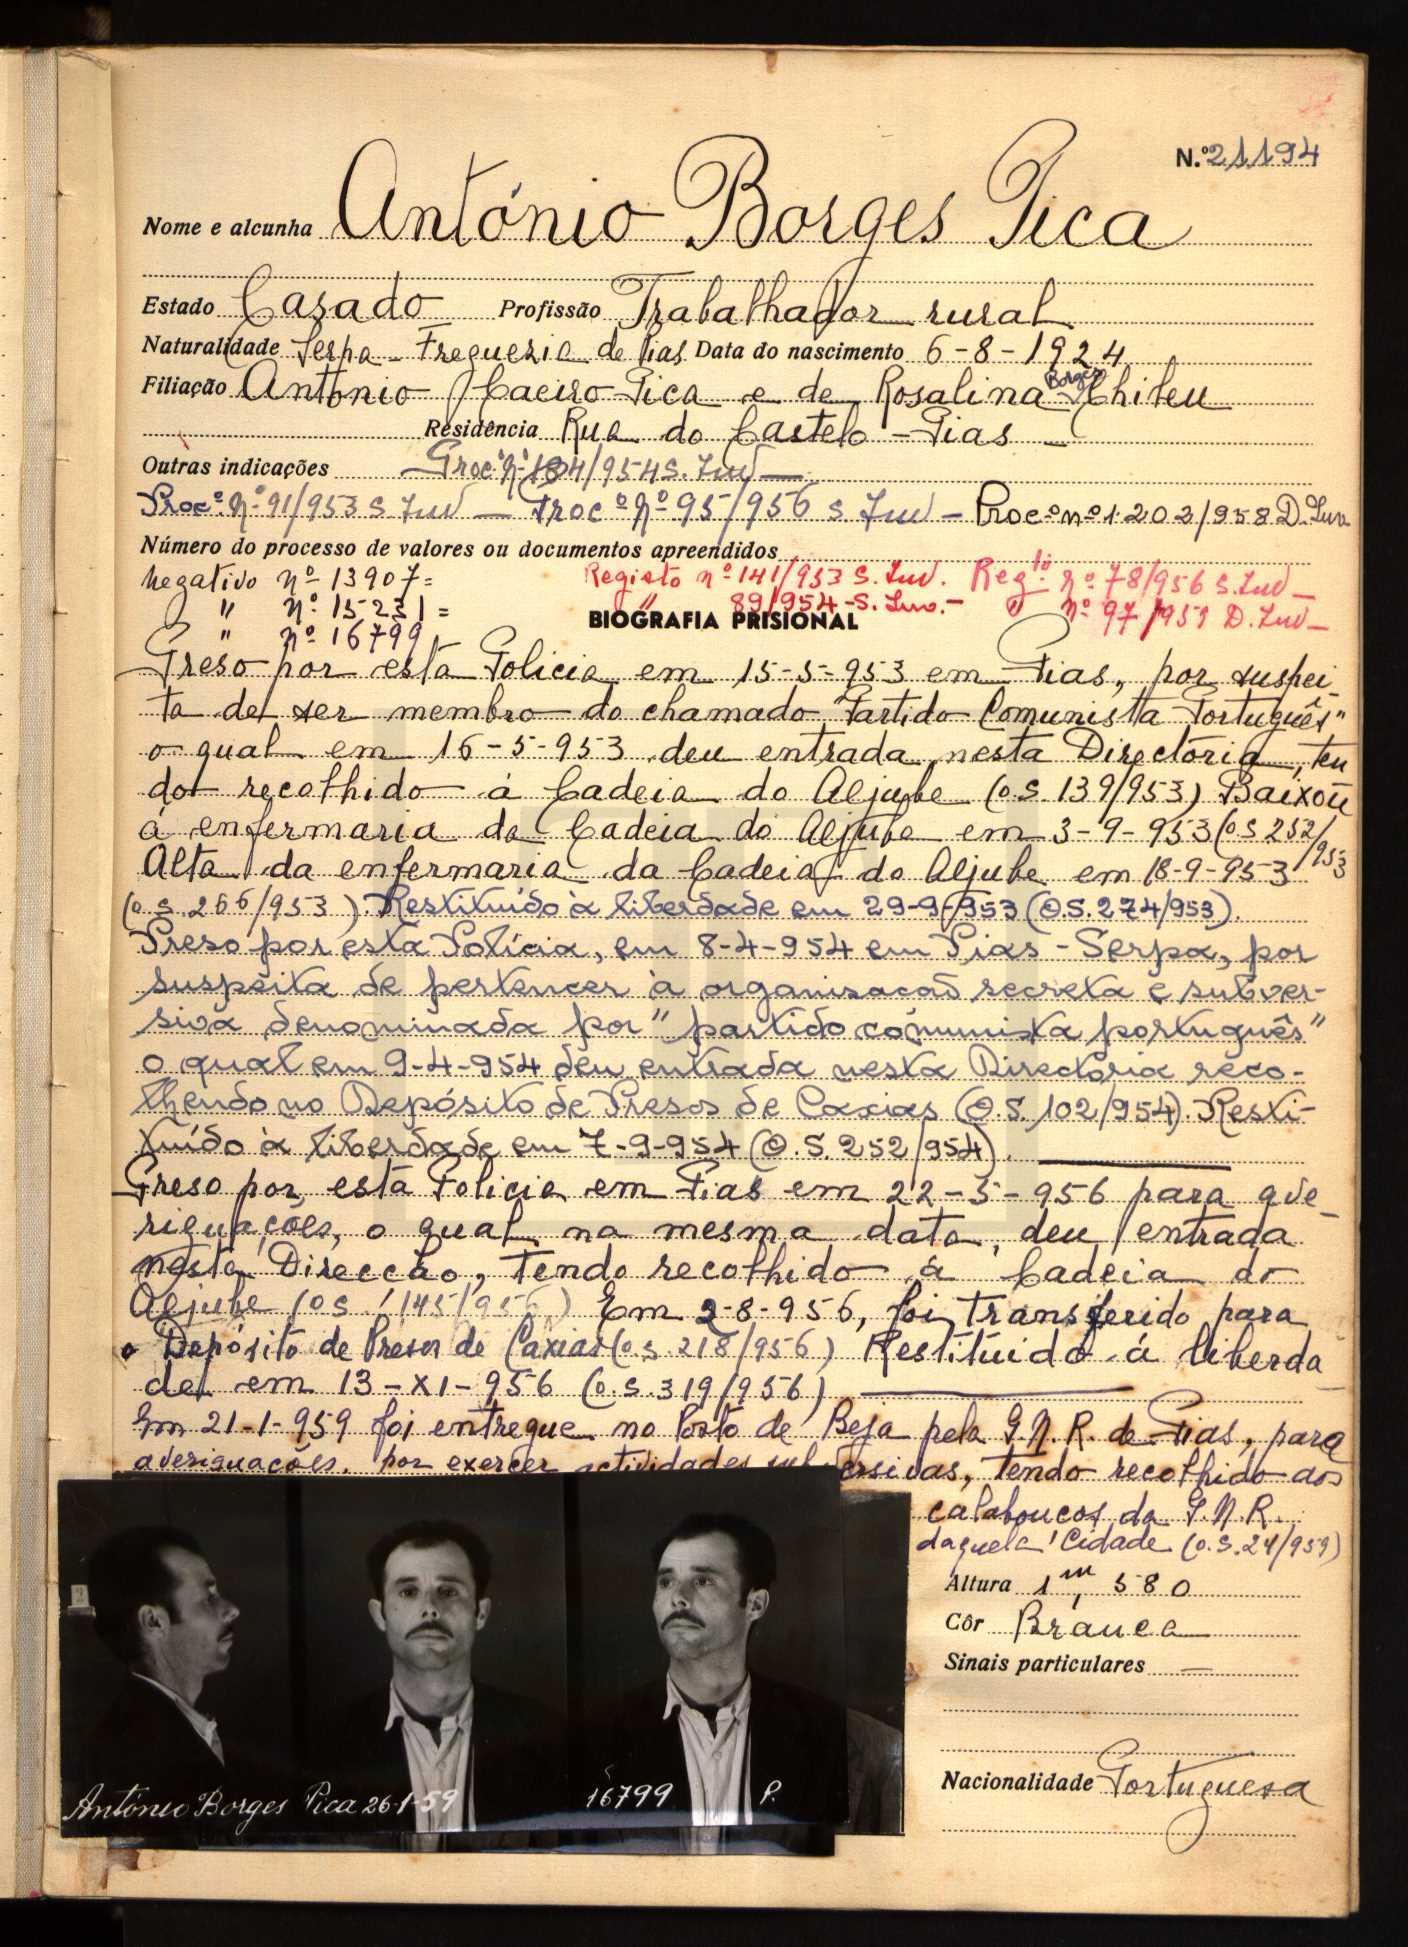 N.º 21194
Nome e alcunha António Borges Pica
Estado Casado Profissão Trabalhador rural
Naturalidade Serpa - Freguesia de Pias Data do nascimento 6-8-1924
Filiação António Caeiro Pica e de Rosalina Borges Chileu
Residência Rua do Castelo - Pias -
Outras indicações Proc. Nº 184/954 S. Inv -
Procº. Nº 91/953 S Inv - Procº Nº 95/956 S Inv - Procº nº 1202/958 D. Inv
Número do processo de valores ou documentos apreendidos
Negativo Nº 13907= Registo nº 141/953 S. Inv. Regto. Nº 78/956 S. Inv -
" Nº 15231= " 89/954-S. Inv.- " Nº 97/959 D. Inv -
" Nº 16799
BIOGRAFIA PRISIONAL
Preso por esta Policia em 15-5-953 em Pias, por suspei-
ta de ser membro do chamado "Partido Comunista Português"
o qual em 16-5-953 deu entrada nesta Directória, ten
do recolhido á Cadeia do Aljube (O.S. 139/953) Baixou
á enfermaria da Cadeia do Aljube em 3-9-953 (O.S 252/953
Alta da enfermaria da Cadeia do Aljube em 18-9-953
(O.S. 266/953). Restituído à liberdade em 29-9-953 (O.S. 274/953).
Preso por esta Polícia, em 8-4-954 em Pias - Serpa, por
suspeita de pertencer à organisação secreta e subver-
siva denominada por "partido comunista português"
o qual em 9-4-954 deu entrada nesta Directória reco-
lhendo no Depósito de Presos de Caxias (O.S. 102/954). Resti-
tuído à liberdade em 7-9-954 (O.S. 252/954).
Preso por esta Policia em Pias em 22-5-956 para ave-
riguações, o qual na mesma data, deu entrada
nesta Direcção, tendo recolhido á Cadeia do
Aljube (O S. 145/956) Em 2-8-956, foi transferido para
o Depósito de Presos de Caxias (O.S. 218/956) Restituído á liberda
de em 13-XI-956 (O.S. 319/956)
Em 21-1-959 foi entregue no Posto de Beja pela G.N.R. de Pias, para
averiguações, por exercer actividades subversivas, tendo recolhido aos
calabouços da G.N.R.
daquela Cidade (O.S. 24/959)
Altura 1m, 580
Côr Branca
Sinais particulares -
Nacionalidade Portuguesa
António Borges Pica 26-1-59 16799 P.